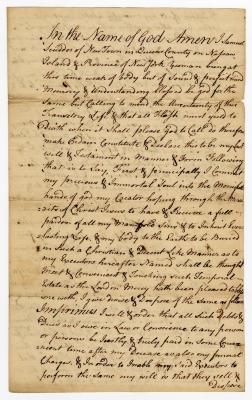 In the Name of God Amen I Samuel
Scudder of New Town in Queens County on Nassau
Island & Province of New York Yeoman being at
this time weak of Body but of Sound & perfect mind
Memory & Understanding Blessed be god for the
same but Calling to mind the Uncertainty of this
Transitory Life & that all Flesh must yield to
Death when it Shall please God to Call Do therefore
make Ordain Constitute & Declare this to be my last
will & Testament in Manner & form Following
that is to Say, First & principally I Commit
my precious & Immortal Soul into the Mercifull
hands of god my Creator hoping through the
of Christ Jesus to have & Receive a full
pardon of all my Manifold Sins & to Inherit Ever
lasting Life, & my body to the Earth to be Buried
in Such a Christian & Decent Like Manner as to
my Executors hereafter Named shall be thought
meet & Convenient & Touching such Temporal
Estate as the Lord in Mercy hath been pleased to
me with I give devise & Dispose of the Same as follows
Imprimus I will & order that all Such Debts &
Dues as I owe in Law or Conscience to any person
or persons be Justly & truly paid in Some Conve
nient time after my Decease as also my funeral
Charges, & in order to Enable my Said Executors to
perform the Same my will is that they sell &
Dispose